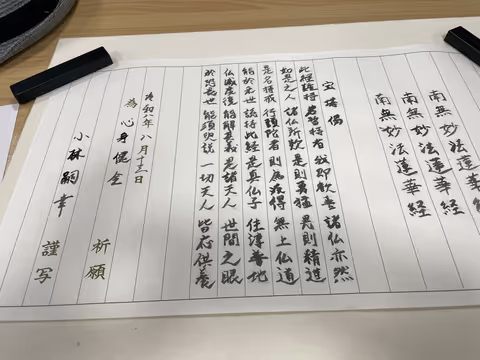 妙法蓮華
南無妙法蓮華経
南無妙法蓮華経
南無妙法蓮華経
宝塔偈
此経難持 若暫持者 我即歓喜 諸仏亦然
如是之人 諸仏所歎 是則勇猛 是則精進
是名持戒 行頭陀者 則為疾得 無上仏道
能於来世 読持此経 是真仏子 住淳善地
仏滅度後 能解其義 是諸天人 世間之眼
於恐畏世 能須臾説 一切天人 皆応供養
令和八年 八月十三日
為 心身健全 祈願
小林嗣幸 謹写